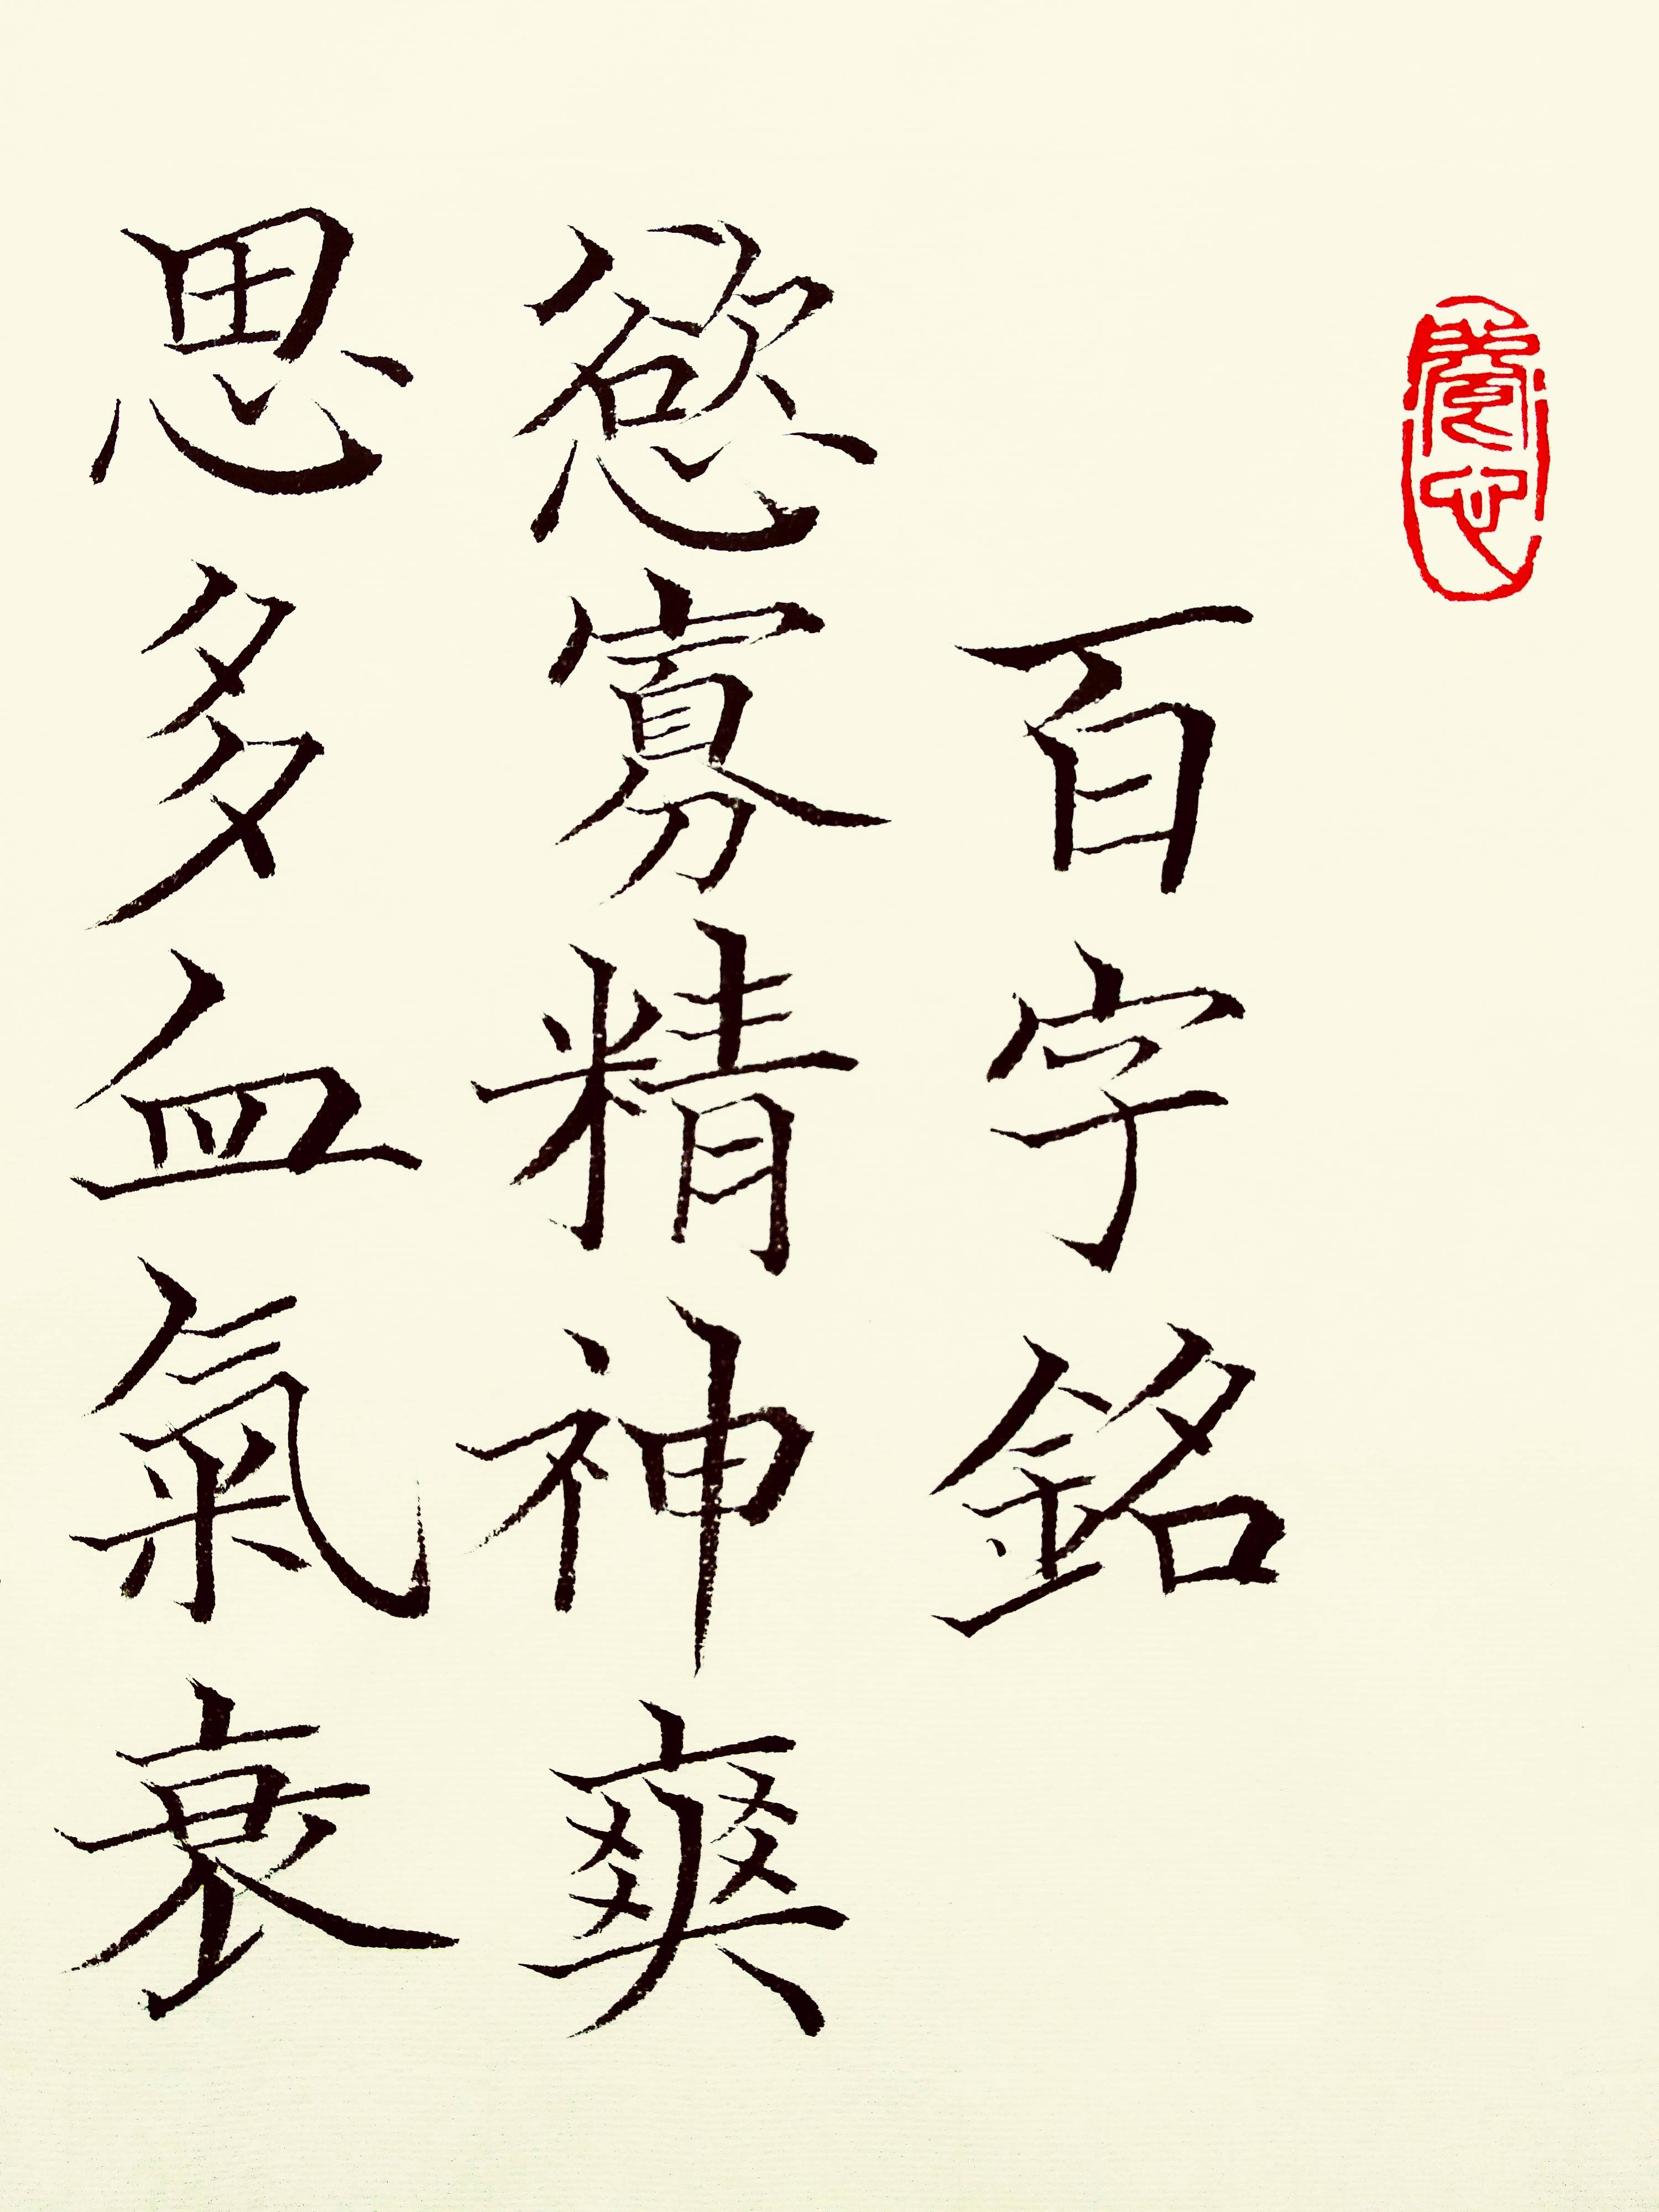 養心
百字銘
慾寡精神爽
思多血氣衰